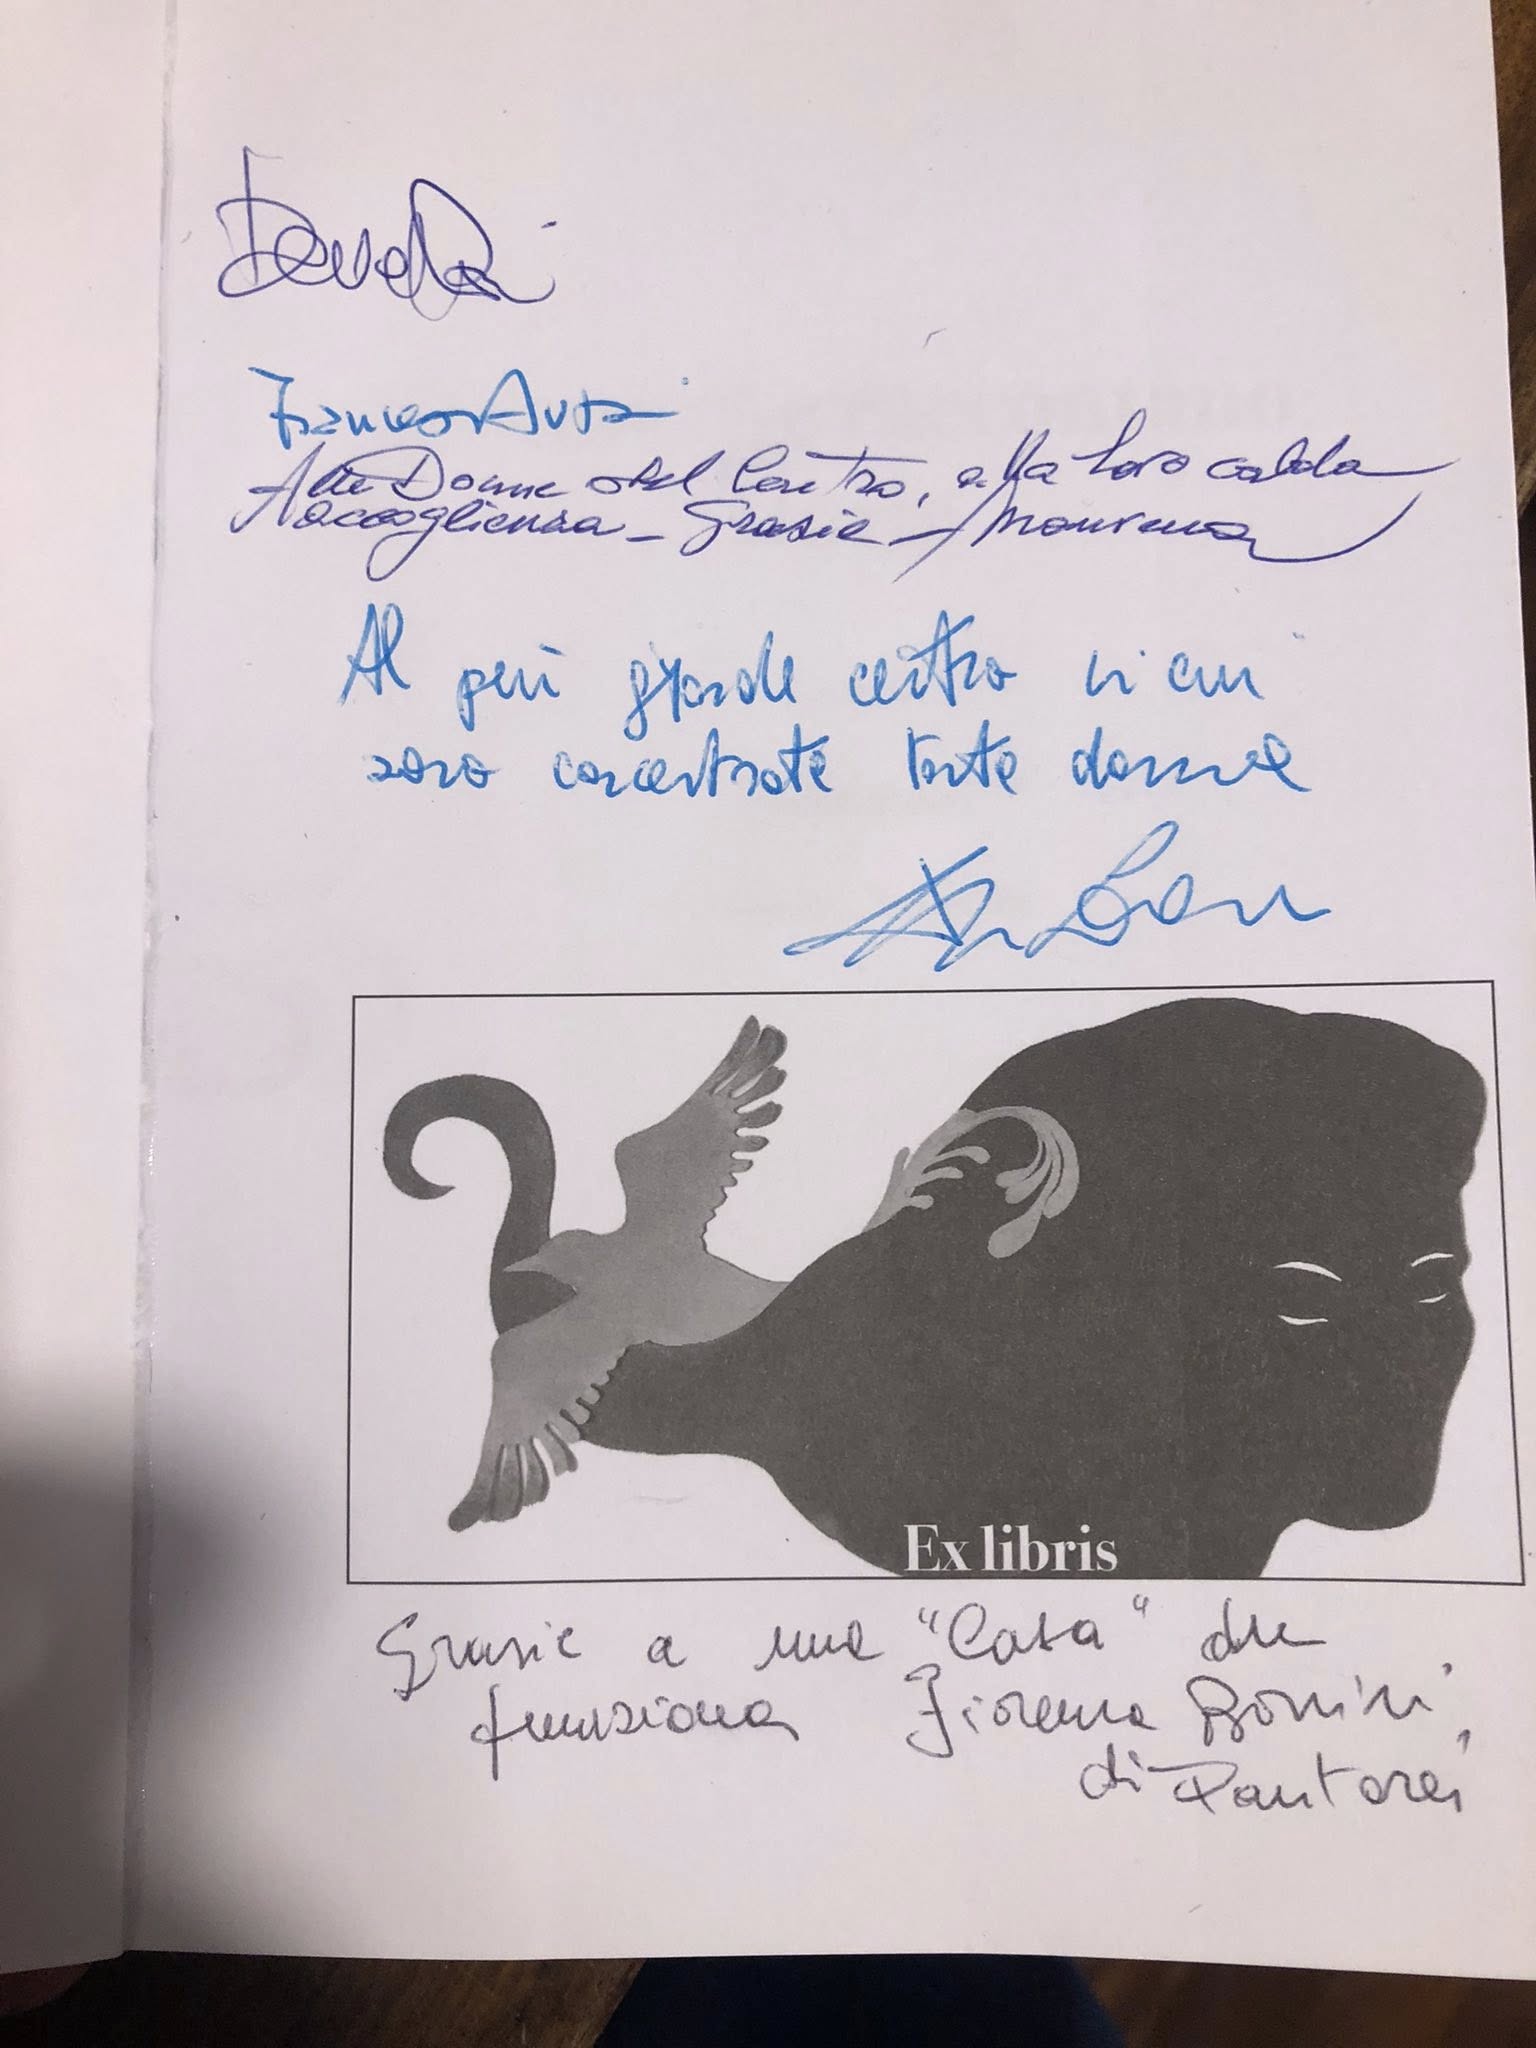 Alle Donne del Centro, alla loro calda
Accoglienza - Grazie -
Al più grande centro in cui
sono concentrate tante donne
Ex libris
Grazie a une "Casa" che
funziona Fiorenza Bonini,
di Pantarei